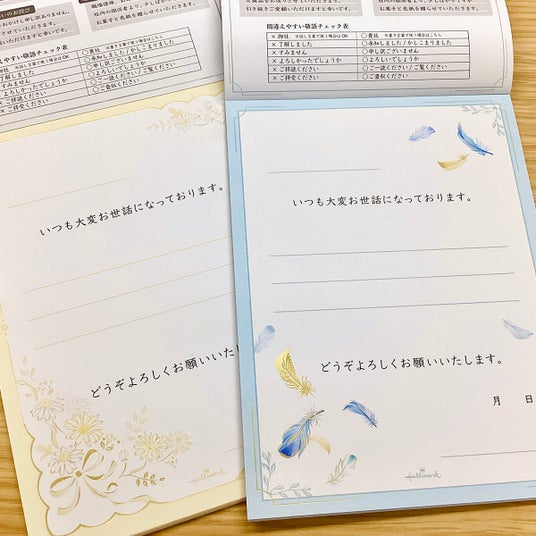 いのお詫び
間違えやすい敬語チェック表
× 了解しました
× すみません
× よろしかったでしょうか
× ご拝読ください
× ご拝受ください
いつも大変お世話になっております。
どうぞよろしくお願いいた
Hallmark
間違えやすい敬語チェック表
× 御社 ※話し言葉で使う場合はOK
○ 貴社 ※書き言葉で使う場合はこちら
× 了解しました
○ 承知しました / かしこまりました
× すみません
○ 申し訳ございません
× よろしかったでしょうか
○ よろしいでしょうか
× ご拝読ください
○ ご一読ください / ご覧ください
× ご拝受ください
○ ご査収ください
いつも大変お世話になっております。
どうぞよろしくお願いいたします。
月 日
Hallmark